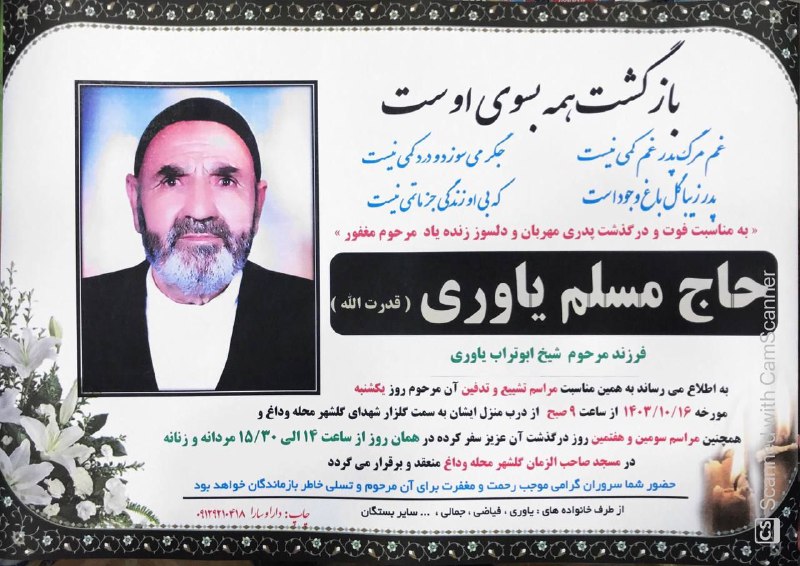 بازگشت همه بسوی اوست
غم مرگ پدر غم کمی نیست جگر می سوزد و درد کمی نیست
پدر زیبا گل باغ وجود است که بی او زندگی جز ماتمی نیست
« به مناسبت فوت و درگذشت پدری مهربان و دلسوز زنده یاد مرحوم مغفور »
حاج مسلم یاوری ( قدرت الله )
فرزند مرحوم شیخ ابوتراب یاوری
به اطلاع می رساند به همین مناسبت مراسم تشییع و تدفین آن مرحوم روز یکشنبه
مورخه ۱۴۰۳/۱۰/۱۶ از ساعت ۹ صبح از درب منزل ایشان به سمت گلزار شهدای گلشهر محله وداغ و
همچنین مراسم سومین و هفتمین روز درگذشت آن عزیز سفر کرده در همان روز از ساعت ۱۴ الی ۱۵/۳۰ مردانه و زنانه
در مسجد صاحب الزمان گلشهر محله وداغ منعقد و برقرار می گردد
حضور شما سروران گرامی موجب رحمت و مغفرت برای آن مرحوم و تسلی خاطر بازماندگان خواهد بود
از طرف خانواده های : یاوری ، فیاضی ، جمالی ، ... سایر بستگان
چاپ: دارا و سارا ۰۹۱۲۹۲۱۰۴۱۸
CS Scanned with CamScanner